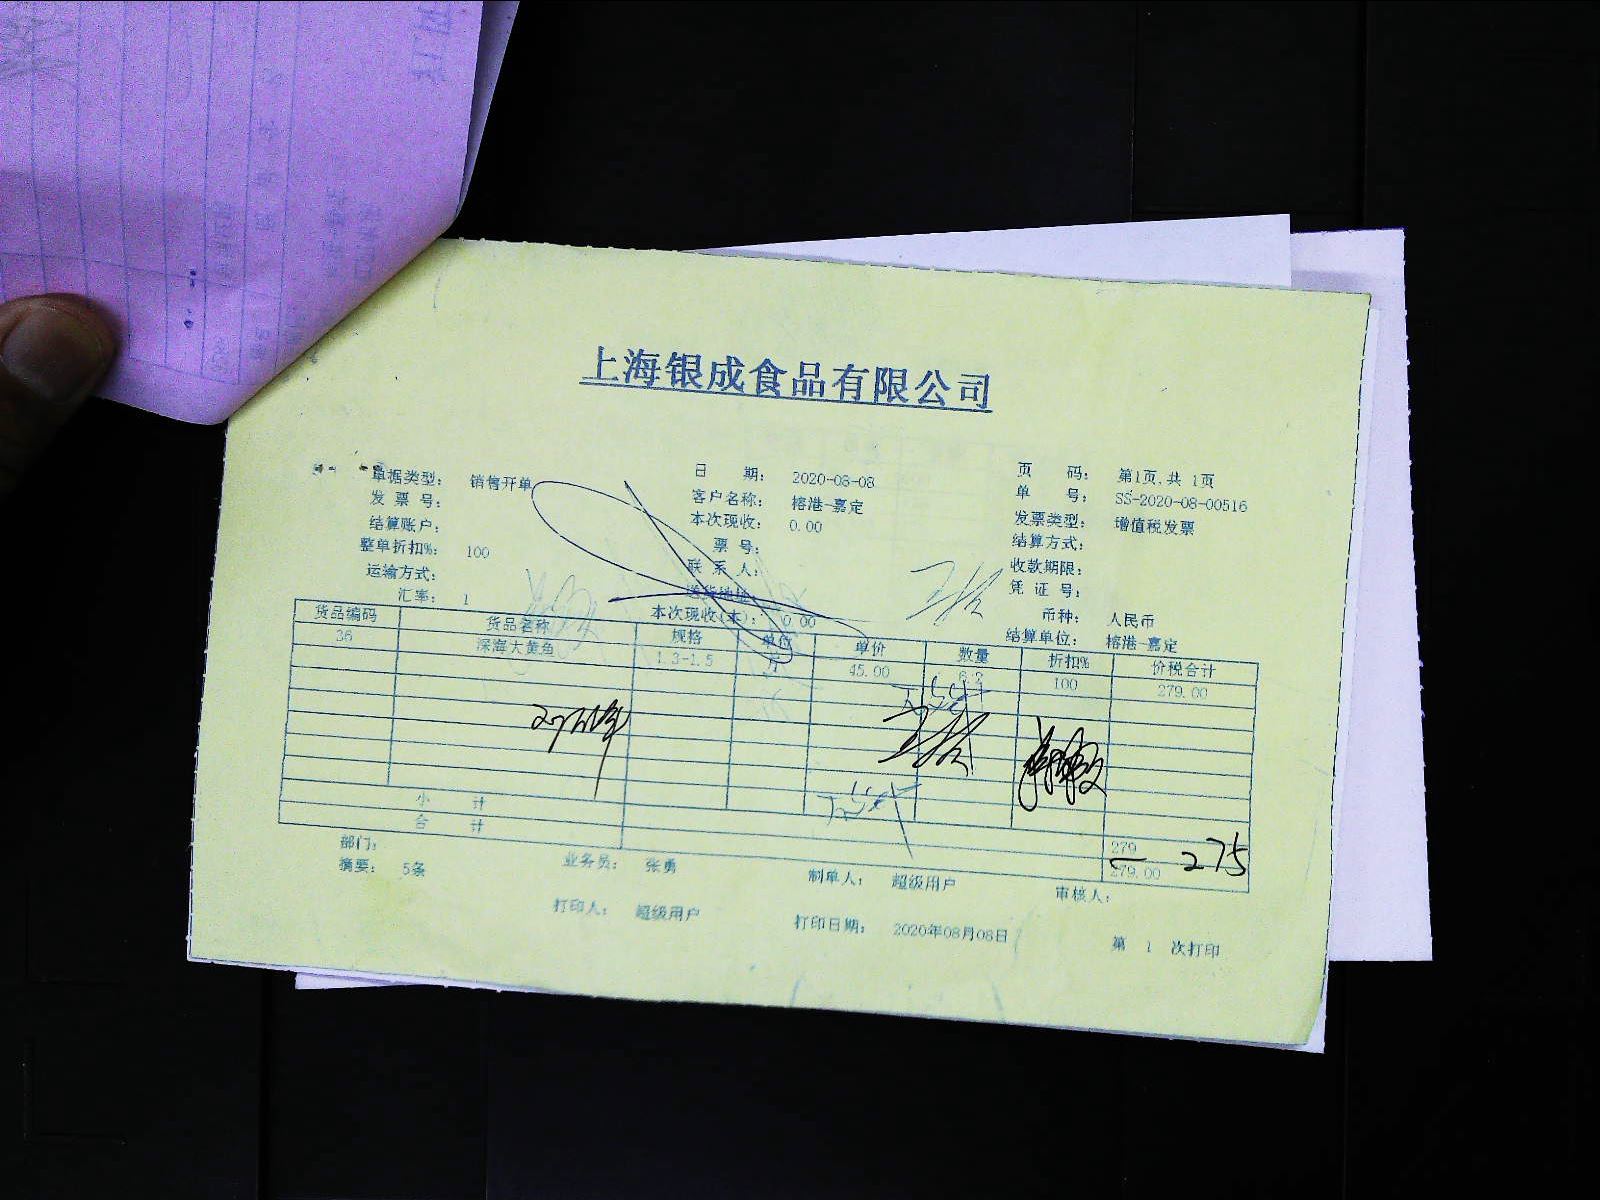 上海银成食品有限公司
单据类型： 销售开单 日 期： 2020-08-08 页 码： 第1页,共 1页
发 票 号： 客户名称： 榕港-嘉定 单 号： SS-2020-08-00516
结算账户： 本次现收： 0.00 发票类型： 增值税发票
整单折扣%： 100 票 号： 结算方式：
运输方式： 联 系 人： 收款期限：
汇率： 1 送货地址： 凭 证 号：
本次现收(本)： 0.00 币种： 人民币
结算单位： 榕港-嘉定
货品编码 货品名称 规格 单位 单价 数量 折扣% 价税合计
36 深海大黄鱼 1.3-1.5 斤 45.00 6.2 100 279.00
小 计 279
合 计 279.00 275
部门：
摘要： 5条 业务员： 张勇 制单人： 超级用户 审核人：
打印人： 超级用户 打印日期： 2020年08月08日 第 1 次打印